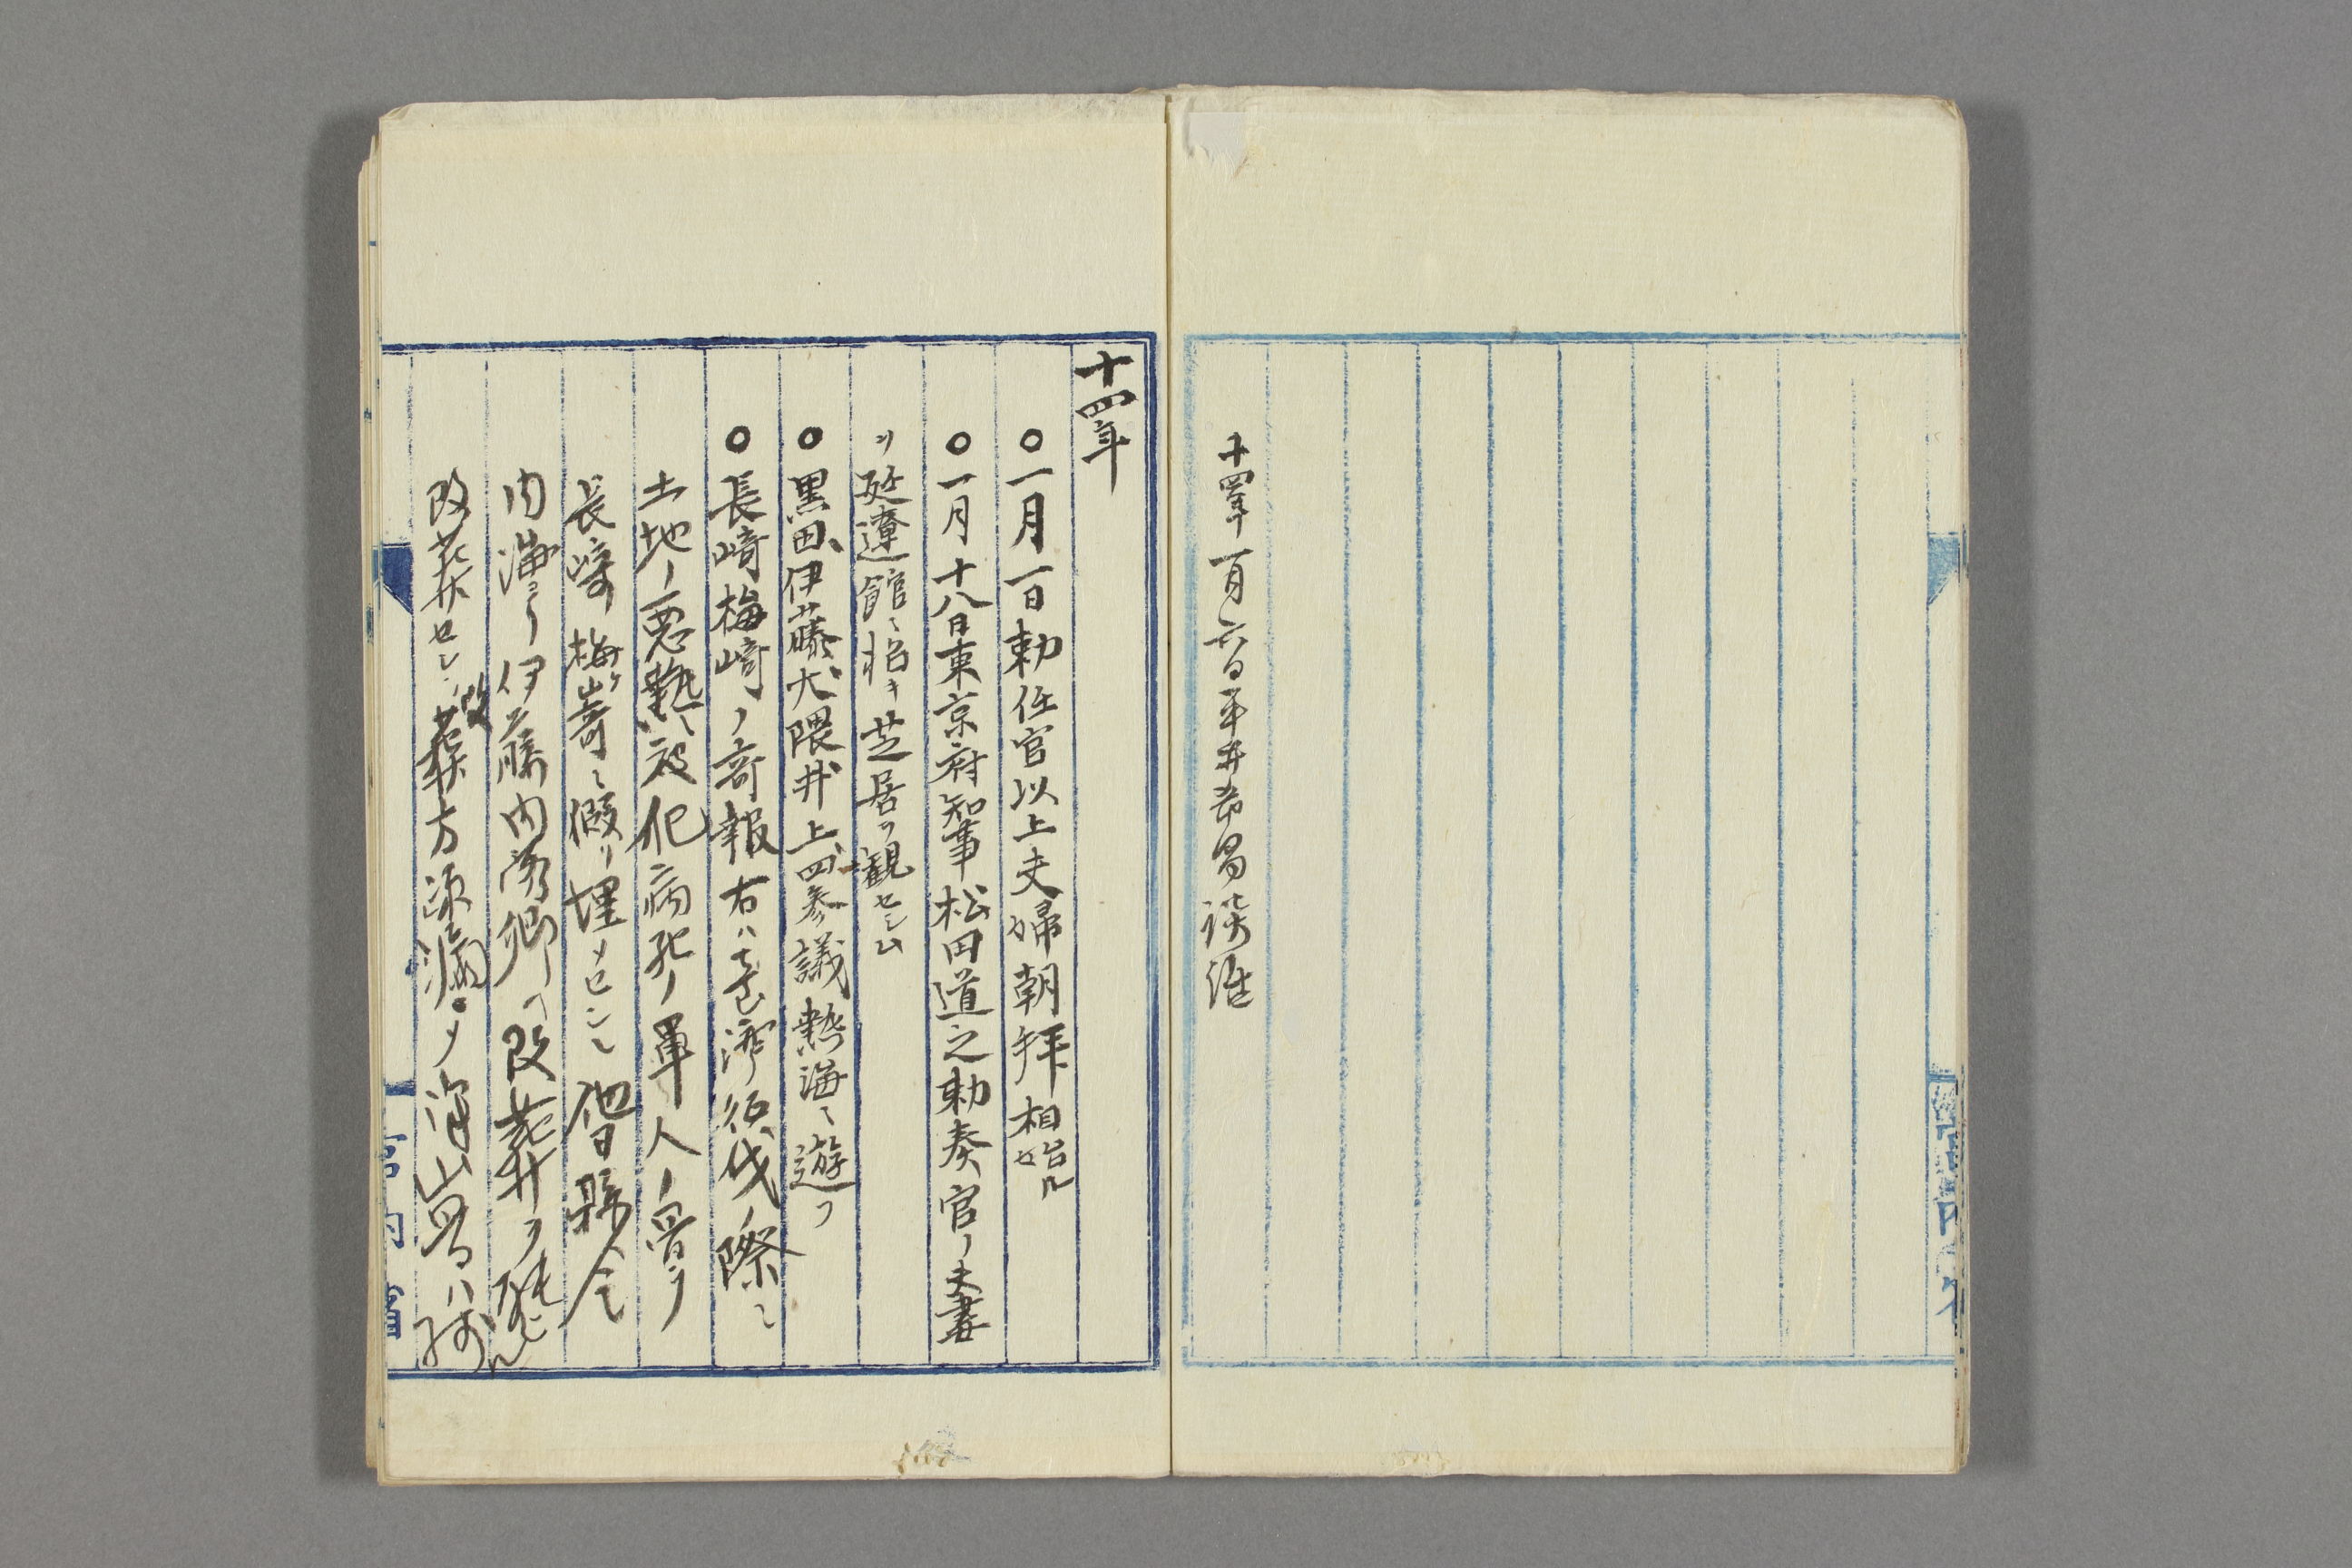 十四年一月六日平井希昌談話
十四年
○一月一日勅任官以上夫婦朝拝相始ル
○一月十八日東京府知事松田道之勅奏官ノ夫妻
ヲ延遼館ニ招キ芝居ヲ観セシム
○黒田、伊藤、大隈、井上、四参議熱海ニ遊フ
○長崎梅崎ノ奇報右ハ台湾征伐ノ際ニ
土地ノ悪熱ニ被犯病死ノ軍人ノ骨ヲ
長崎梅ヶ崎ニ假リ埋メセシニ他日縣令
内海ヨリ伊藤内務卿ヘ改葬ヲ
改葬セシニ改葬方疎漏
宮内省